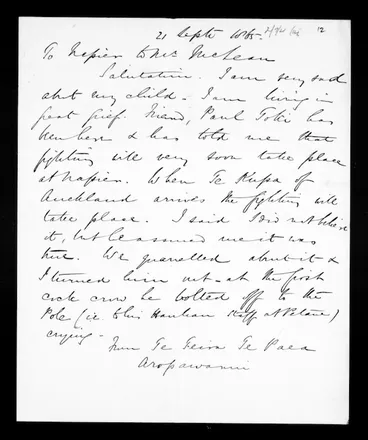 21 Septr 1865 12
To Napier to Mr. McLean
Salutation. I am very sad
abt my child. I am living in
great grief. Friend, Paul Toki has
been here & has told me that
fighting will very soon take place
at Napier. When Te Reipa of
Auckland arrives the fighting will
take place. I said I did not believe
it, but he assured me it was
true. We quarrelled about it &
I turned him out. at the first
cock crow he bolted off to the
Pole (ie to his Hauhau staff at Petane)
crying.
From Te Teira Te Paea
Aropawanui